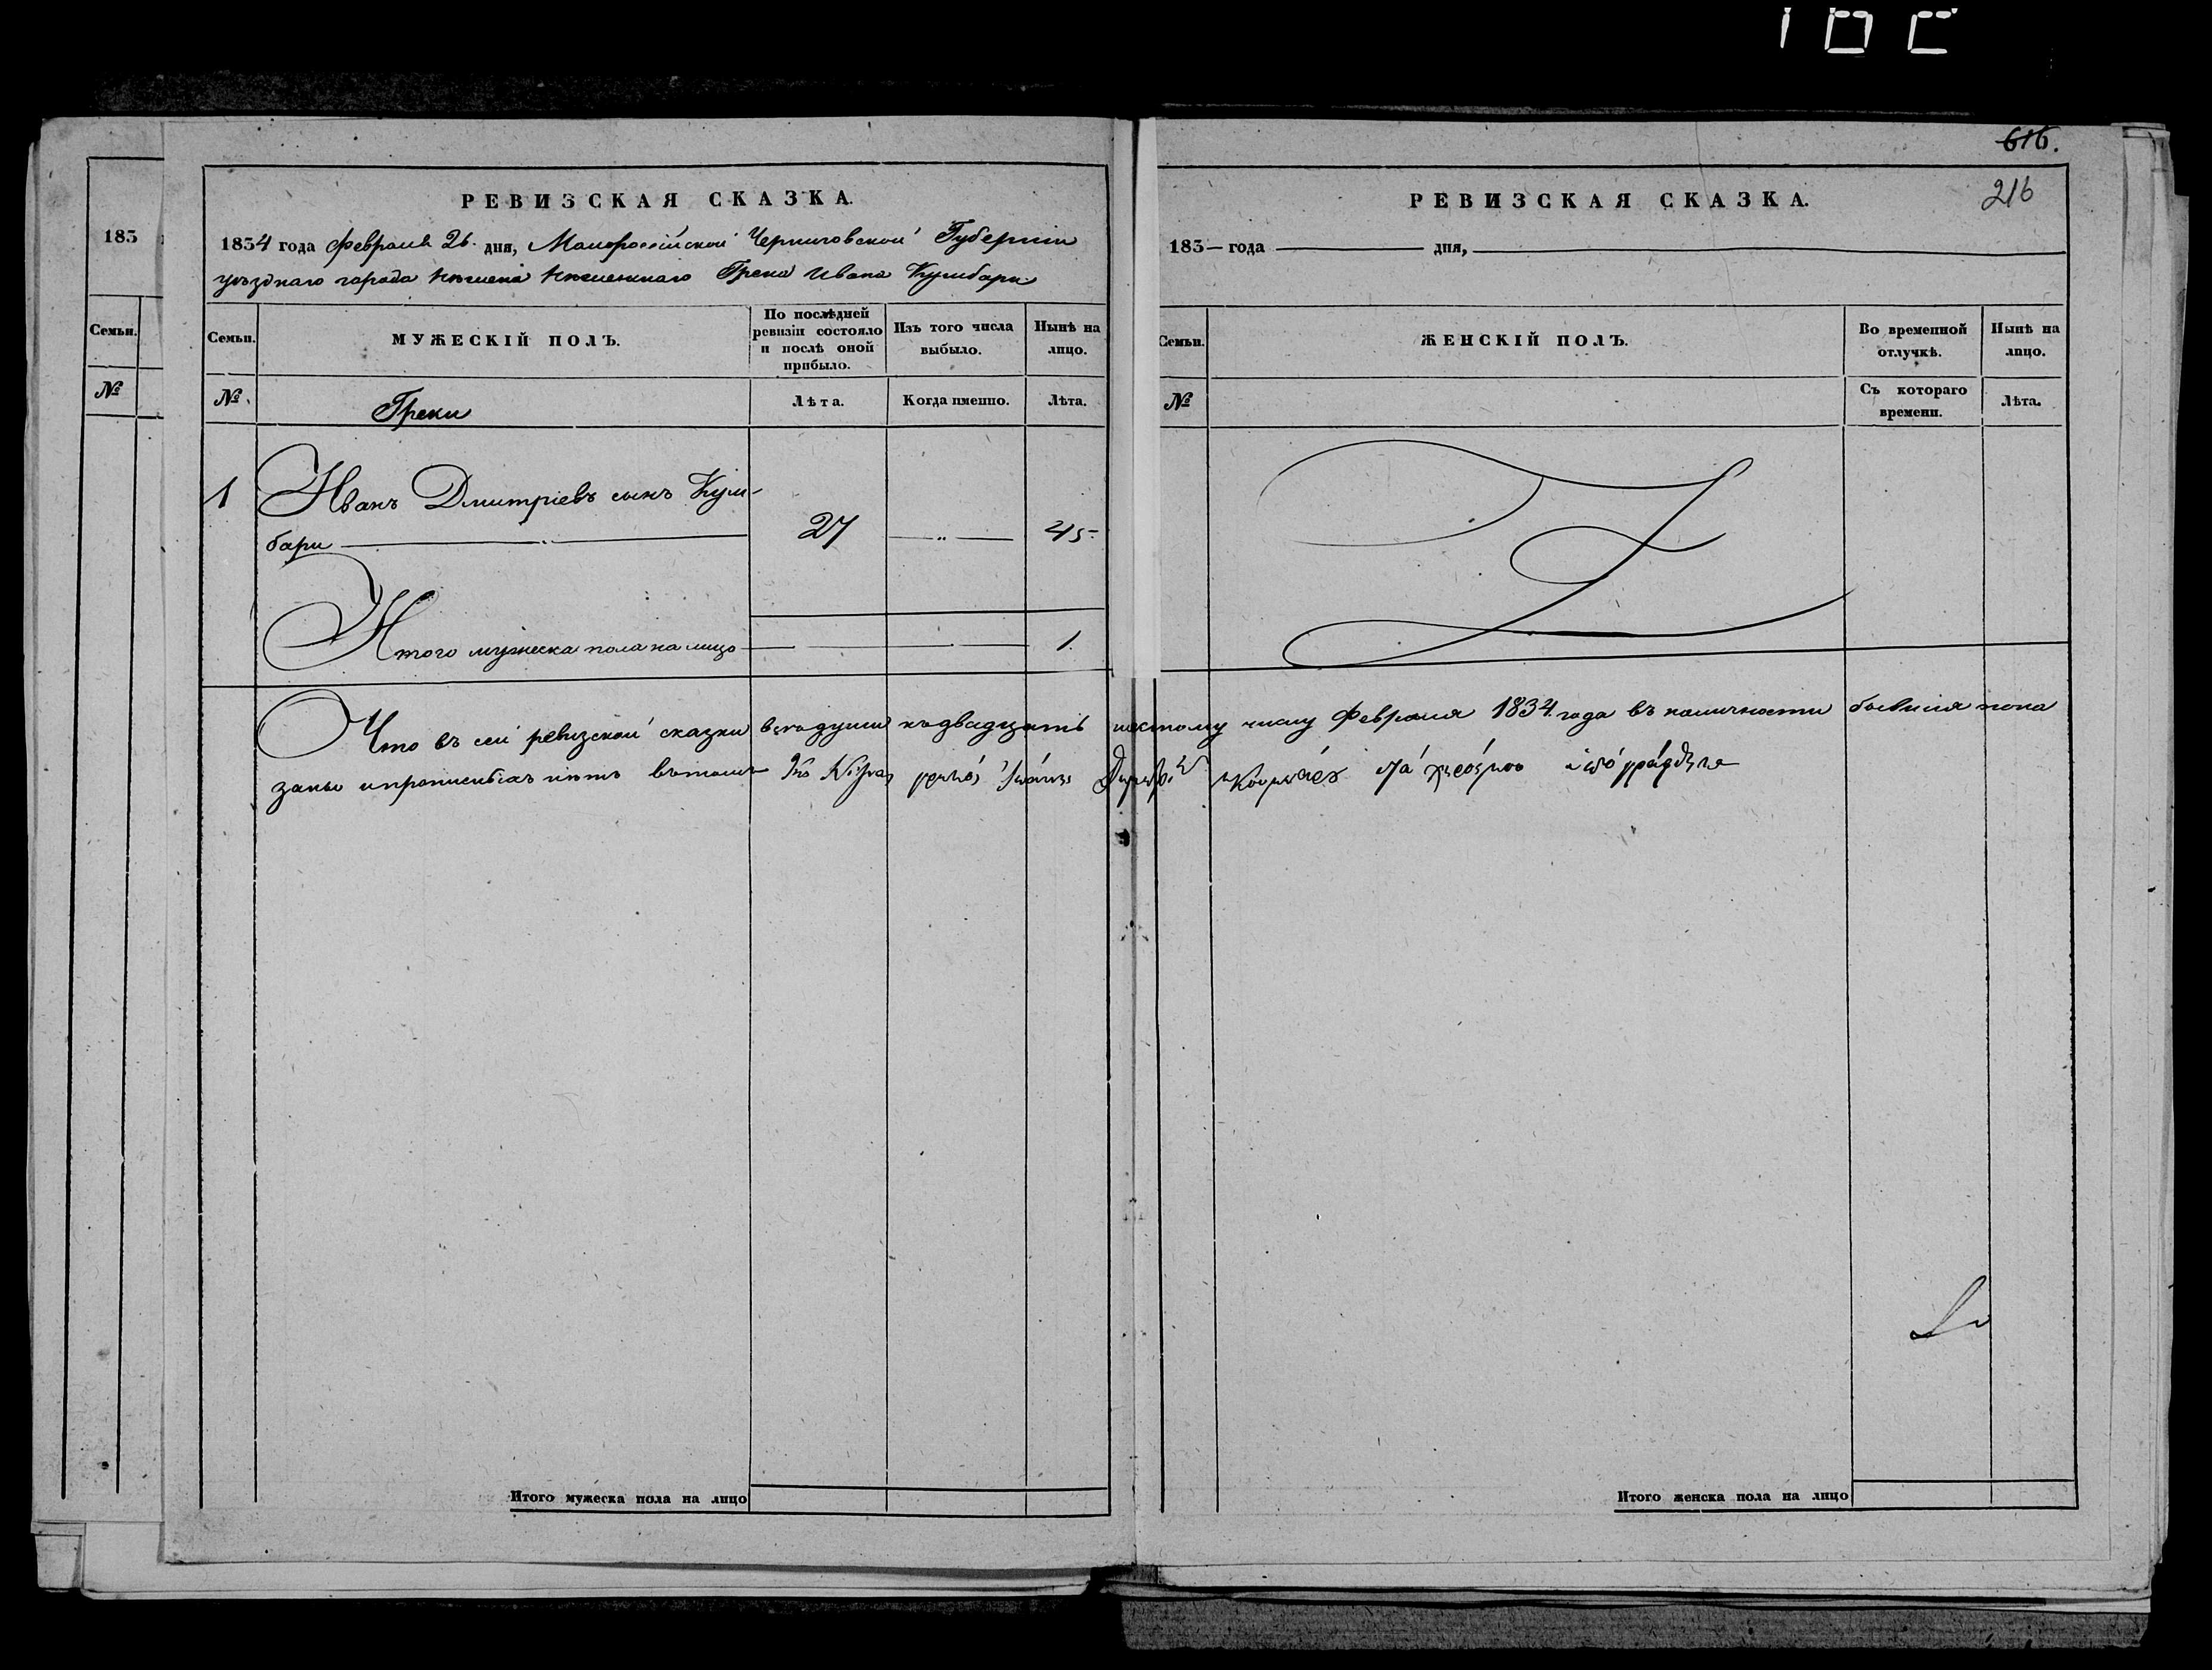 616.
216
183
Семьи.
№
РЕВИЗСКАЯ СКАЗКА.
1834 года Февраля 26. дня, Малороссійской Черниговской Губерніи
уѣзднаго города Нѣжина Нѣжинскаго Грека Ивана Кумбари
Семьи.
МУЖЕСКІЙ ПОЛЪ.
По послѣдней ревизіи состояло и послѣ оной прибыло.
Изъ того числа выбыло.
Нынѣ на лицо.
№
Греки
Лѣта.
Когда именно.
Лѣта.
1 Иванъ Дмитріевъ сынъ Кум-
бари — 27 — „ — 45
Итого мужеска пола на лицо — 1.
РЕВИЗСКАЯ СКАЗКА.
183— года — дня, —
Семьи.
ЖЕНСКІЙ ПОЛЪ.
Во временной отлучкѣ.
Нынѣ на лицо.
№
Съ котораго времени.
Лѣта.
Что въ сей ревизской сказки всѣ души къ двадцать шестому числу Февраля 1834 года въ наличности бывшія пока
заны и прописныхъ нѣтъ въ томъ Ἰωάννης
Итого мужеска пола на лицо
Итого женска пола на лицо